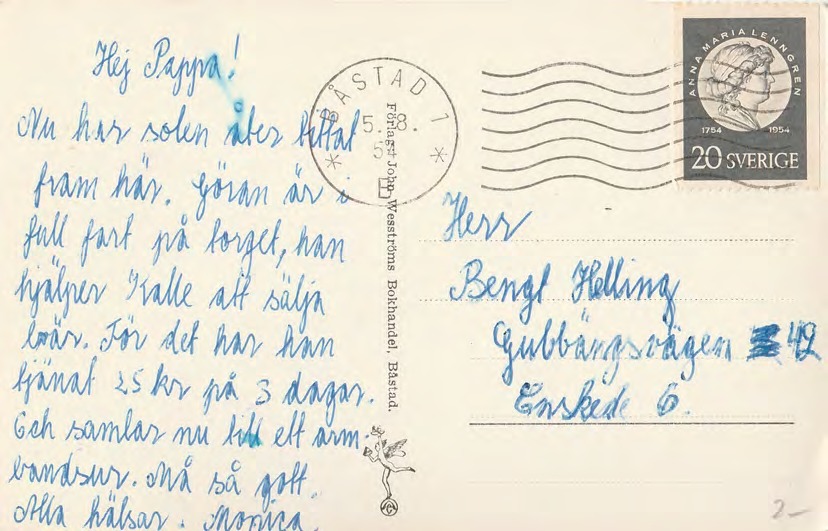 Hej Pappa!
Nu har solen åter tittat
fram här. Göran är i
full fart på torget, han
hjälper Kalle att sälja
bär. För det har han
tjänat 25 kr på 3 dagar.
Och samlar nu till ett arm-
bandsur. Må så gott.
Alla hälsar. Monica.
BÅSTAD 1
5. 8.
5
B
Förlag: John Wesströms Bokhandel, Båstad.
ANNA MARIA LENNGREN
1754 1954
20 SVERIGE
Herr
Bengt Helling
Gubbängsvägen 42
Enskede 6.
2-